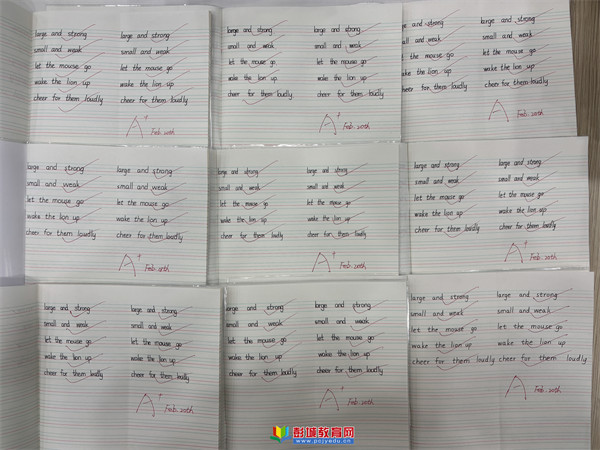 large and strong large and strong
small and weak small and weak
let the mouse go let the mouse go
wake the lion up wake the lion up
cheer for them loudly cheer for them loudly
A+ Feb. 20th
large and strong large and strong
small and weak small and weak
let the mouse go let the mouse go
wake the lion up wake the lion up
cheer for them loudly cheer for them loudly
A+ Feb. 20th
large and strong large and strong
small and weak small and weak
let the mouse go let the mouse go
wake the lion up wake the lion up
cheer for them loudly cheer for them loudly
A Feb. 20th
large and strong large and strong
small and weak small and weak
let the mouse go let the mouse go
wake the lion up wake the lion up
cheer for them loudly cheer for them loudly
A+ Feb.
large and strong large and strong
small and weak small and weak
let the mouse go let the mouse go
wake the lion up wake the lion up
cheer for them loudly cheer for them loudly
A+ Feb. 20th
large and strong large and strong
small and weak small and weak
let the mouse go let the mouse go
wake the lion up wake the lion up
cheer for them loudly cheer for them loudly
A Feb. 20th
large and strong large and strong
small and weak small and weak
let the mouse go let the mouse go
wake the lion up wake the lion up
cheer for them loudly cheer for them loudly
A+ Feb. 20th
large and strong large and strong
small and weak small and weak
let the mouse go let the mouse go
wake the lion up wake the lion up
cheer for them loudly cheer for them loudly
A+ Feb. 20th
large and strong large and strong
small and weak small and weak
let the mouse go let the mouse go
wake the lion up wake the lion up
cheer for them loudly cheer for them loudly
A Feb. 20th
彭城教育网
www.pcjyedu.cn